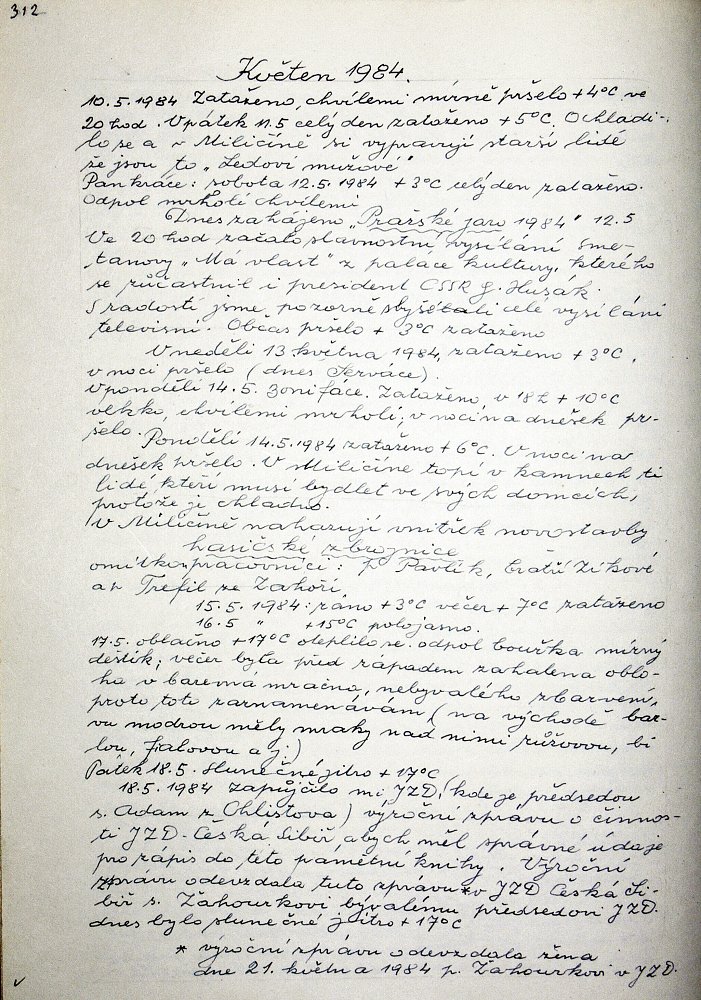 312
Květen 1984.
10.5.1984 Zataženo, chvílemi mírně pršelo +4°C ve
20 hod. V pátek 11.5 celý den zataženo +5°C. Ochladi-
lo se a v Miličíně si vypravují starší lidé
že jsou to „Ledoví mužové"
Pankráce: sobota 12.5.1984 +3°C celý den zataženo.
Odpol mrholí chvílemi
Dnes zahájeno „Pražské jaro 1984" 12.5
Ve 20 hod začalo slavnostní vysílání Sme-
tanovy „Má vlast" z paláce kultury, kterého
se zúčastnil i president ČSSR G. Husák.
S radostí jsme pozorně slyšeli celé vysílání
televisní. Občas pršelo + 3°C zataženo
V neděli 13 května 1984 zataženo +3°C,
v noci pršelo (dnes Serváce).
V pondělí 14.5. Bonifáce. Zataženo v 18h +10°C
vlhko, chvílemi mrholí, v noci na dnešek pr-
šelo.
Pondělí 14.5.1984 zataženo +6°C. V noci na
dnešek pršelo. V Miličíně topí v kamnech ti
lidé kteří musí bydlet ve svých domcích,
protože je chladno.
V Miličíně nahazují vnitřek novostavby
hasičské zbrojnice
omítkou pracovníci: p Pavlík, bratří Zíkové
a p Trefil ze Zahoří.
15.5. 1984: ráno +3°C večer +7°C zataženo
16.5 „ +15°C polojasno.
17.5. oblačno +17°C oteplilo se. odpol bouřka mírný
deštík; večer byla před západem zahalena oblo-
ha v barevná mračna, nebyvalého zbarvení,
proto toto zaznamenávám (na východě bar-
vu modrou měly mraky nad nimi růžovou, bí
lou, fialovou a j.)
Pátek 18.5. slunečné jitro +17°C
18.5. 1984 zapůjčilo mi JZD, (kde je předsedou
s. Adam z Ohlistova) výroční zprávu o činnos-
ti JZD. Česká Sibiř, abych měl správné údaje
pro zápis do této pamětní knihy. Výroční
zprávu odevzdala tuto zprávu * v JZD Česká Si-
biř s. Záhourkovi bývalému předsedovi JZD.
dnes bylo slunečné jitro +17°C
* výroční zprávu odevzdala žena
dne 21. května 1984 p. Záhourkovi v JZD.